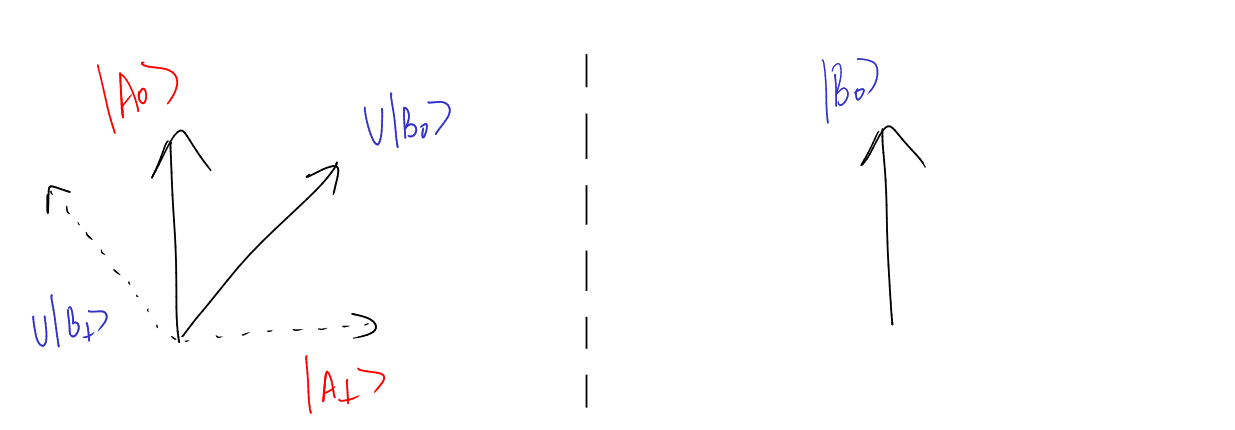 |A₀⟩
U|B₀⟩
U|B⊥⟩
|A⊥⟩
|B₀⟩